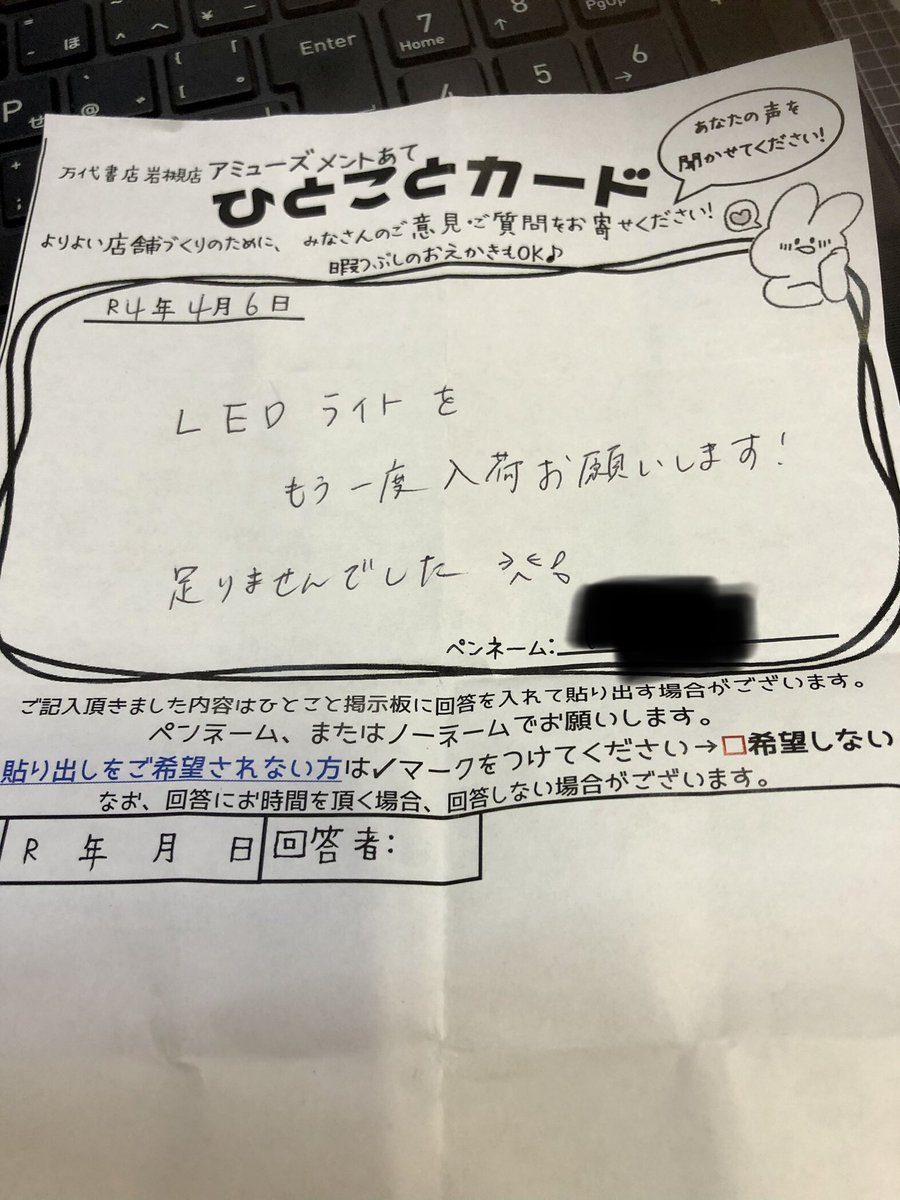 あなたの声を
聞かせてください!
万代書店 岩槻店 アミューズメントあて
ひとことカード
よりよい店舗づくりのために、みなさんのご意見・ご質問をお寄せください!
暇つぶしのおえかきもOK♪
R4年4月6日
LEDライトを
もう一度入荷お願いします!
足りませんでした
ペンネーム:
ご記入頂きました内容はひとこと掲示板に回答を入れて貼り出す場合がございます。
ペンネーム、またはノーネームでお願いします。
貼り出しをご希望されない方は✓マークをつけてください→□希望しない
なお、回答にお時間を頂く場合、回答しない場合がございます。
R 年 月 日 回答者:
Enter
7
Home
8
PgUp
4
5
6
P
せ
@
ほ
へ
¥
[